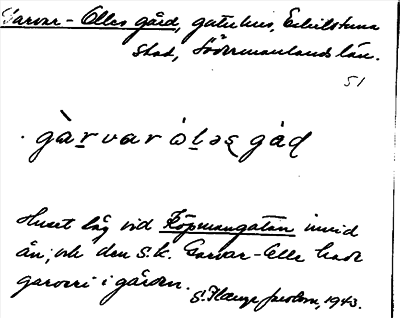 Garvar-Olles gård, gatuhus, Eskilstuna
stad, Södermanlands län.
51
gàr̲var ól̲əs̨ gåḍ
Huset låg vid Köpmangatan invid
ån, och den s.k. Garvar-Olle hade
garveri i gården.
1943.